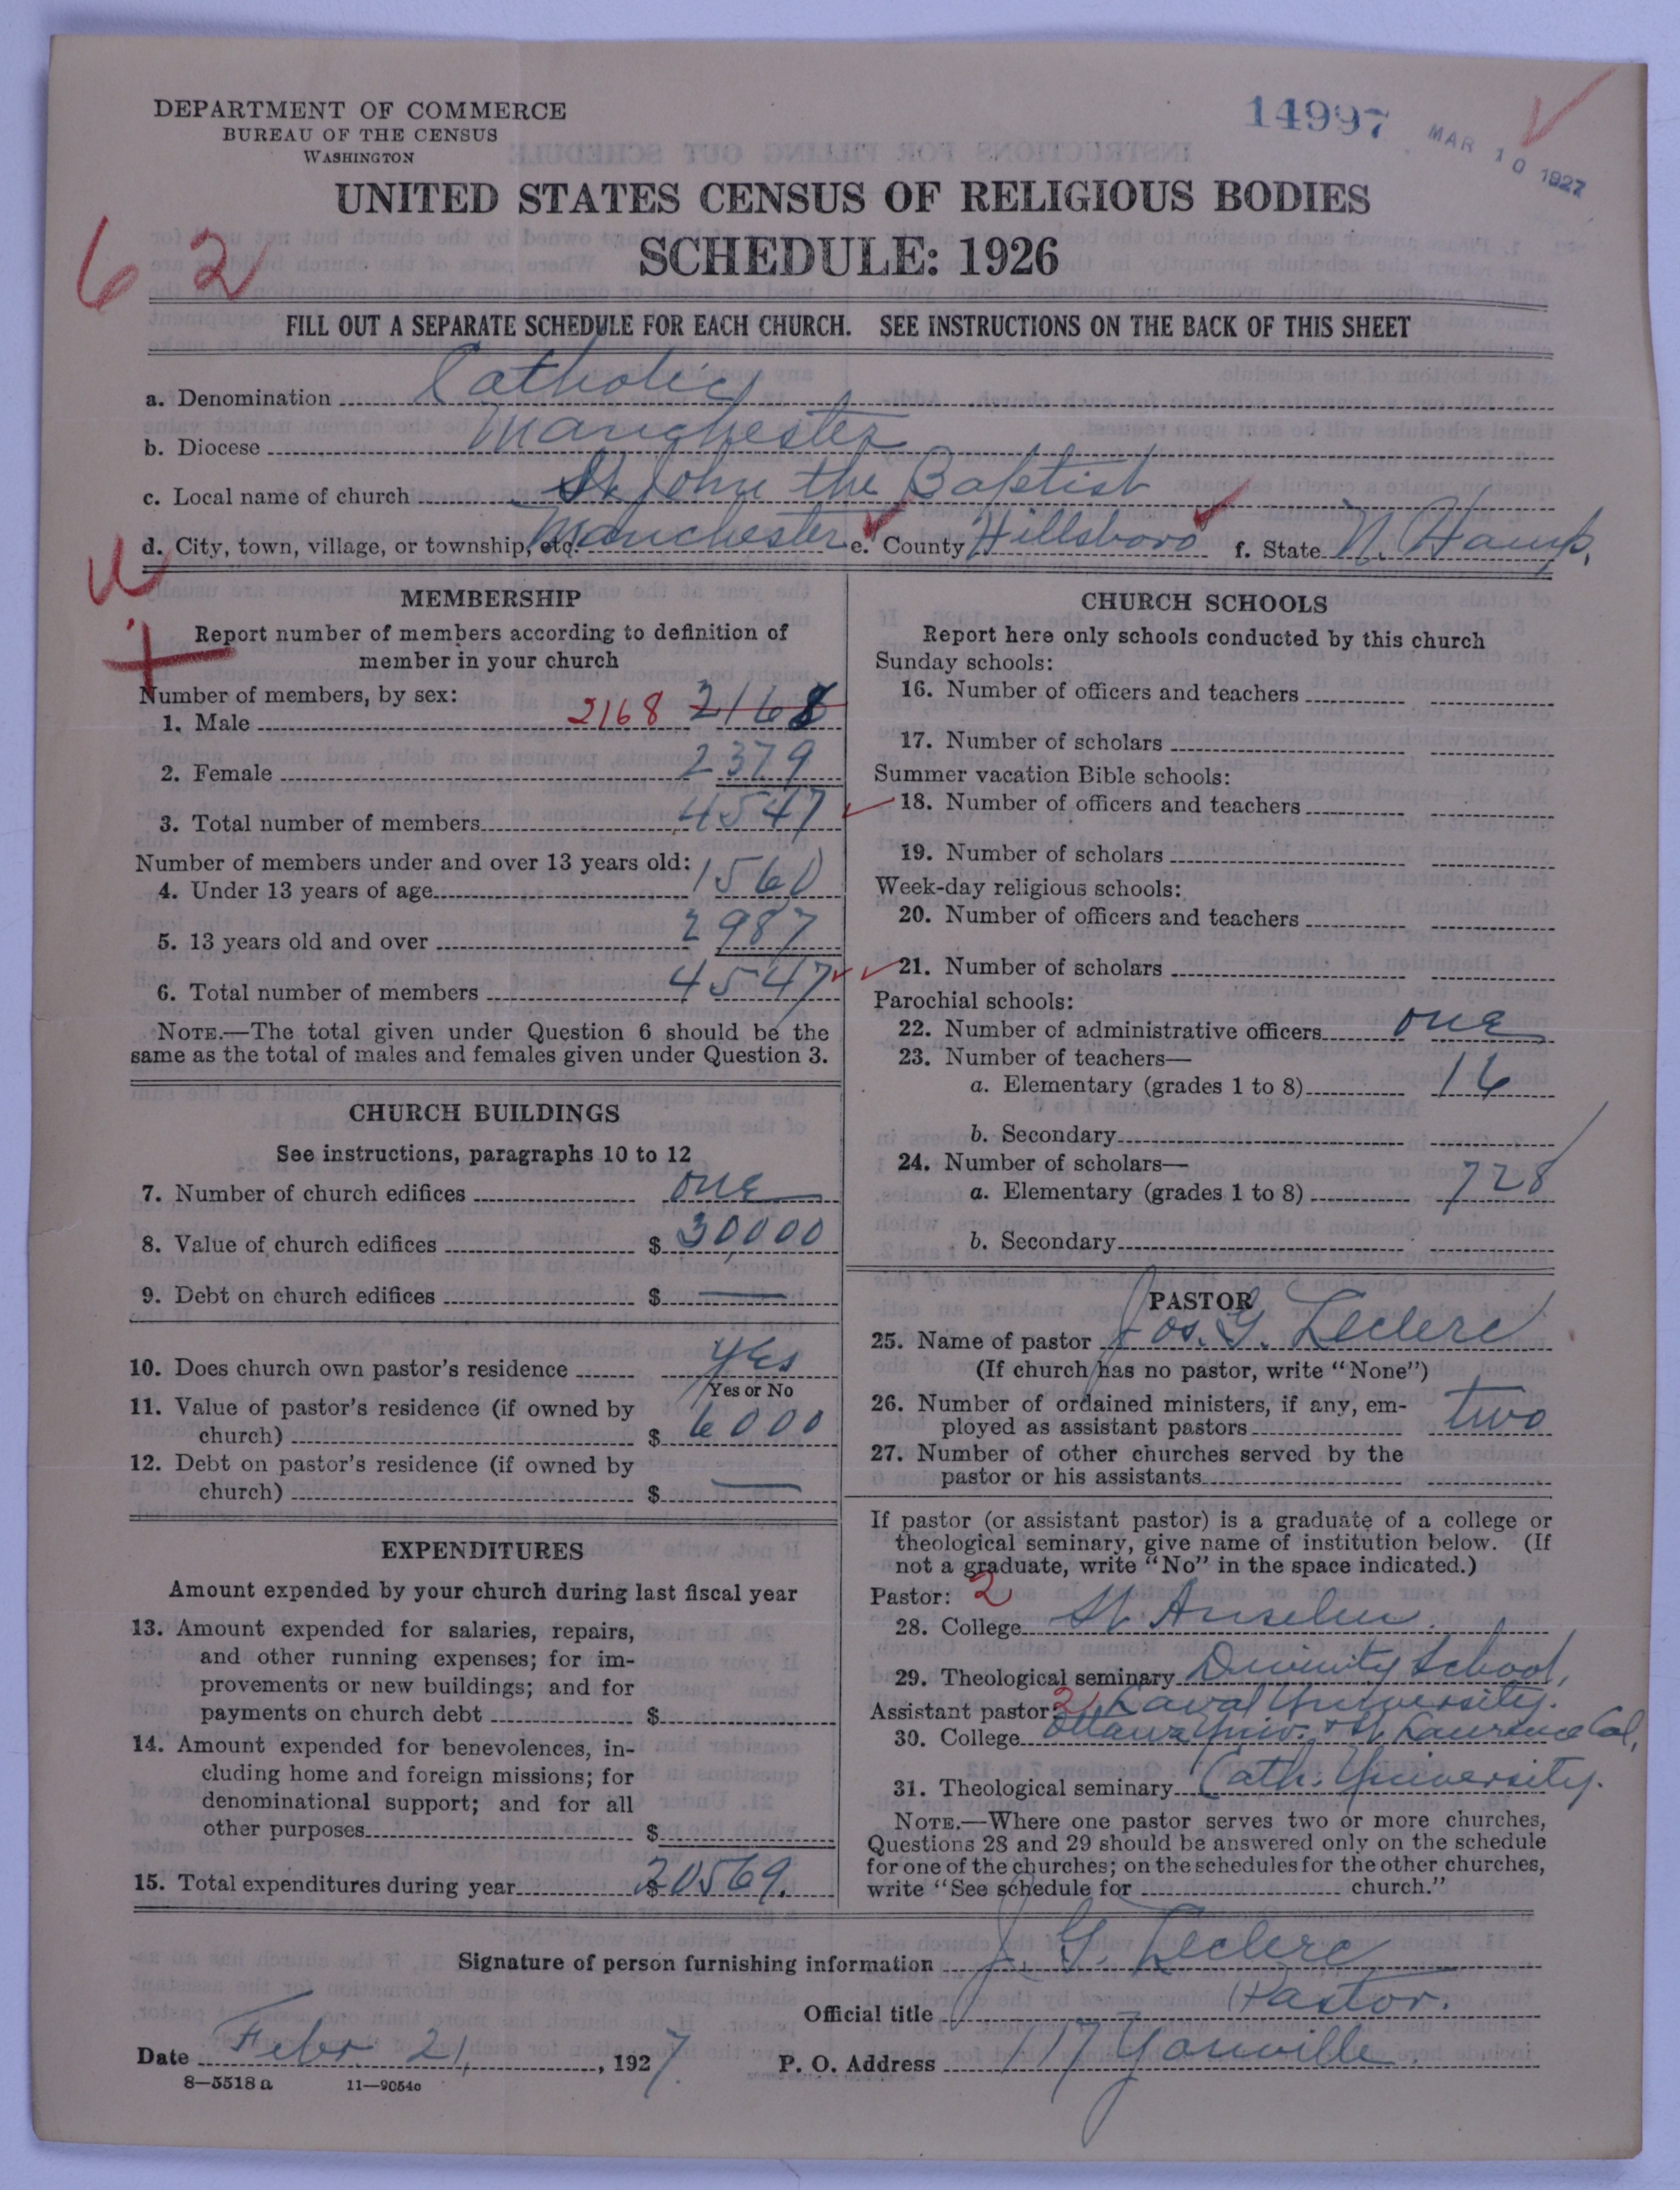 DEPARTMENT OF COMMERCE
BUREAU OF THE CENSUS
WASHINGTON
14997
MAR 10 1927
UNITED STATES CENSUS OF RELIGIOUS BODIES
SCHEDULE: 1926
62
FILL OUT A SEPARATE SCHEDULE FOR EACH CHURCH. SEE INSTRUCTIONS ON THE BACK OF THIS SHEET
a. Denomination Catholic
b. Diocese Manchester
c. Local name of church St John the Baptist
d. City, town, village, or township, etc. Manchester e. County Hillsboro f. State N. Hamp.
MEMBERSHIP
Report number of members according to definition of
member in your church
Number of members, by sex:
1. Male 2168 2168
2. Female 2379
3. Total number of members 4547
Number of members under and over 13 years old:
4. Under 13 years of age 1560
5. 13 years old and over 2987
6. Total number of members 4547
NOTE.—The total given under Question 6 should be the
same as the total of males and females given under Question 3.
CHURCH BUILDINGS
See instructions, paragraphs 10 to 12
7. Number of church edifices one
8. Value of church edifices $ 30,000
9. Debt on church edifices $ —
10. Does church own pastor's residence yes
Yes or No
11. Value of pastor's residence (if owned by
church) $ 6000
12. Debt on pastor's residence (if owned by
church) $ —
EXPENDITURES
Amount expended by your church during last fiscal year
13. Amount expended for salaries, repairs,
and other running expenses; for im-
provements or new buildings; and for
payments on church debt $
14. Amount expended for benevolences, in-
cluding home and foreign missions; for
denominational support; and for all
other purposes $
15. Total expenditures during year $ 20569.
CHURCH SCHOOLS
Report here only schools conducted by this church
Sunday schools:
16. Number of officers and teachers
17. Number of scholars
Summer vacation Bible schools:
18. Number of officers and teachers
19. Number of scholars
Week-day religious schools:
20. Number of officers and teachers
21. Number of scholars
Parochial schools:
22. Number of administrative officers one
23. Number of teachers—
a. Elementary (grades 1 to 8) 16
b. Secondary
24. Number of scholars—
a. Elementary (grades 1 to 8) 728
b. Secondary
PASTOR
25. Name of pastor Jos. G. Leclerc
(If church has no pastor, write "None")
26. Number of ordained ministers, if any, em-
ployed as assistant pastors two
27. Number of other churches served by the
pastor or his assistants
If pastor (or assistant pastor) is a graduate of a college or
theological seminary, give name of institution below. (If
not a graduate, write "No" in the space indicated.)
Pastor: 2
28. College St Anselm
29. Theological seminary Divinity School,
Laval University.
Assistant pastor: 2
30. College Ottawa Univ. & St. Laurence Col,
31. Theological seminary Cath. University.
NOTE.—Where one pastor serves two or more churches,
Questions 28 and 29 should be answered only on the schedule
for one of the churches; on the schedules for the other churches,
write "See schedule for church."
Signature of person furnishing information J. G. Leclerc
Official title Pastor.
Date Febr 21, 1927.
P. O. Address 117 Youville
8—5518 a 11—9054c